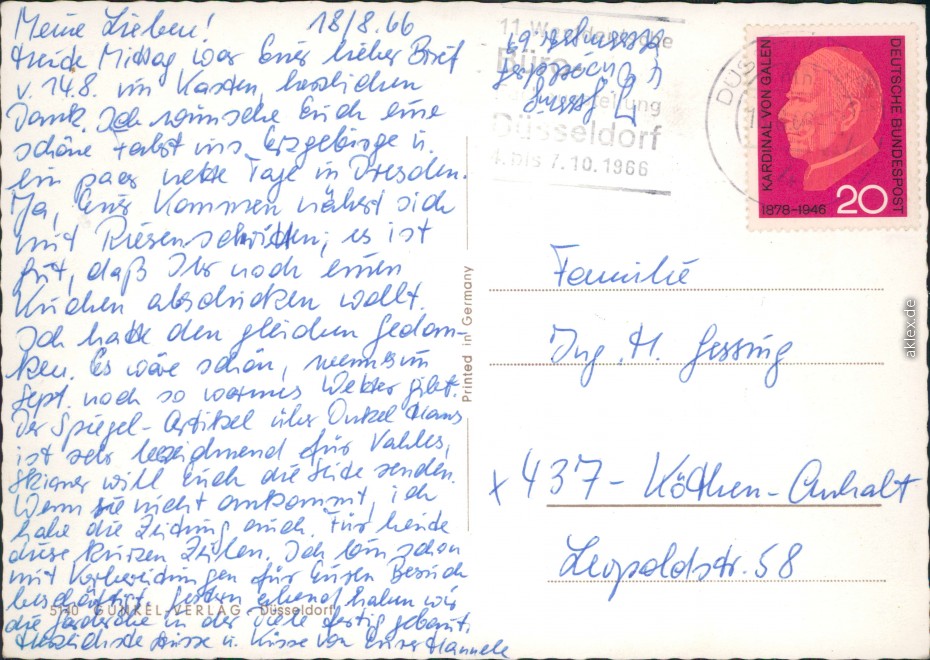 Meine Lieben! 18/8.66
Heute Mittag war Euer lieber Brief
v. 14.8. im Kasten, herzlichen
Dank. Ich wünsche Euch eine
schöne Fahrt ins Erzgebirge u.
ein paar nette Tage in Dresden.
Ja, Euer Kommen nähert sich
mit Riesenschritten; es ist
gut, daß Ihr noch einen
Kuchen abschicken wollt.
Ich hatte den gleichen Gedan-
ken. Es wäre schön, wenn es im
Sept. noch so warmes Wetter gibt.
Der Spiegel-Artikel über Onkel Hans
ist sehr bezeichnend für
will Euch die Seite senden.
Wenn sie nicht ankommt, ich
habe die Zeitung auch. Für heute
diese kurzen Zeilen. Ich bin schon
mit Vorbereitungen für Euren Besuch
beschäftigt. Gestern abend haben wir
die Garderobe in der Diele fertig gebaut.
Herzlichste Grüsse u. Küsse von Eurer Hannele
5140 GUNKEL-VERLAG - Düsseldorf
Printed in Germany
11.
Büro
Düsseldorf
4. bis 7.10.1966
KARDINAL VON GALEN
1878-1946
20
DEUTSCHE BUNDESPOST
Familie
Ing. H. Gessing
x 437 - Köthen-Anhalt
Leopoldstr. 58
aklex.de